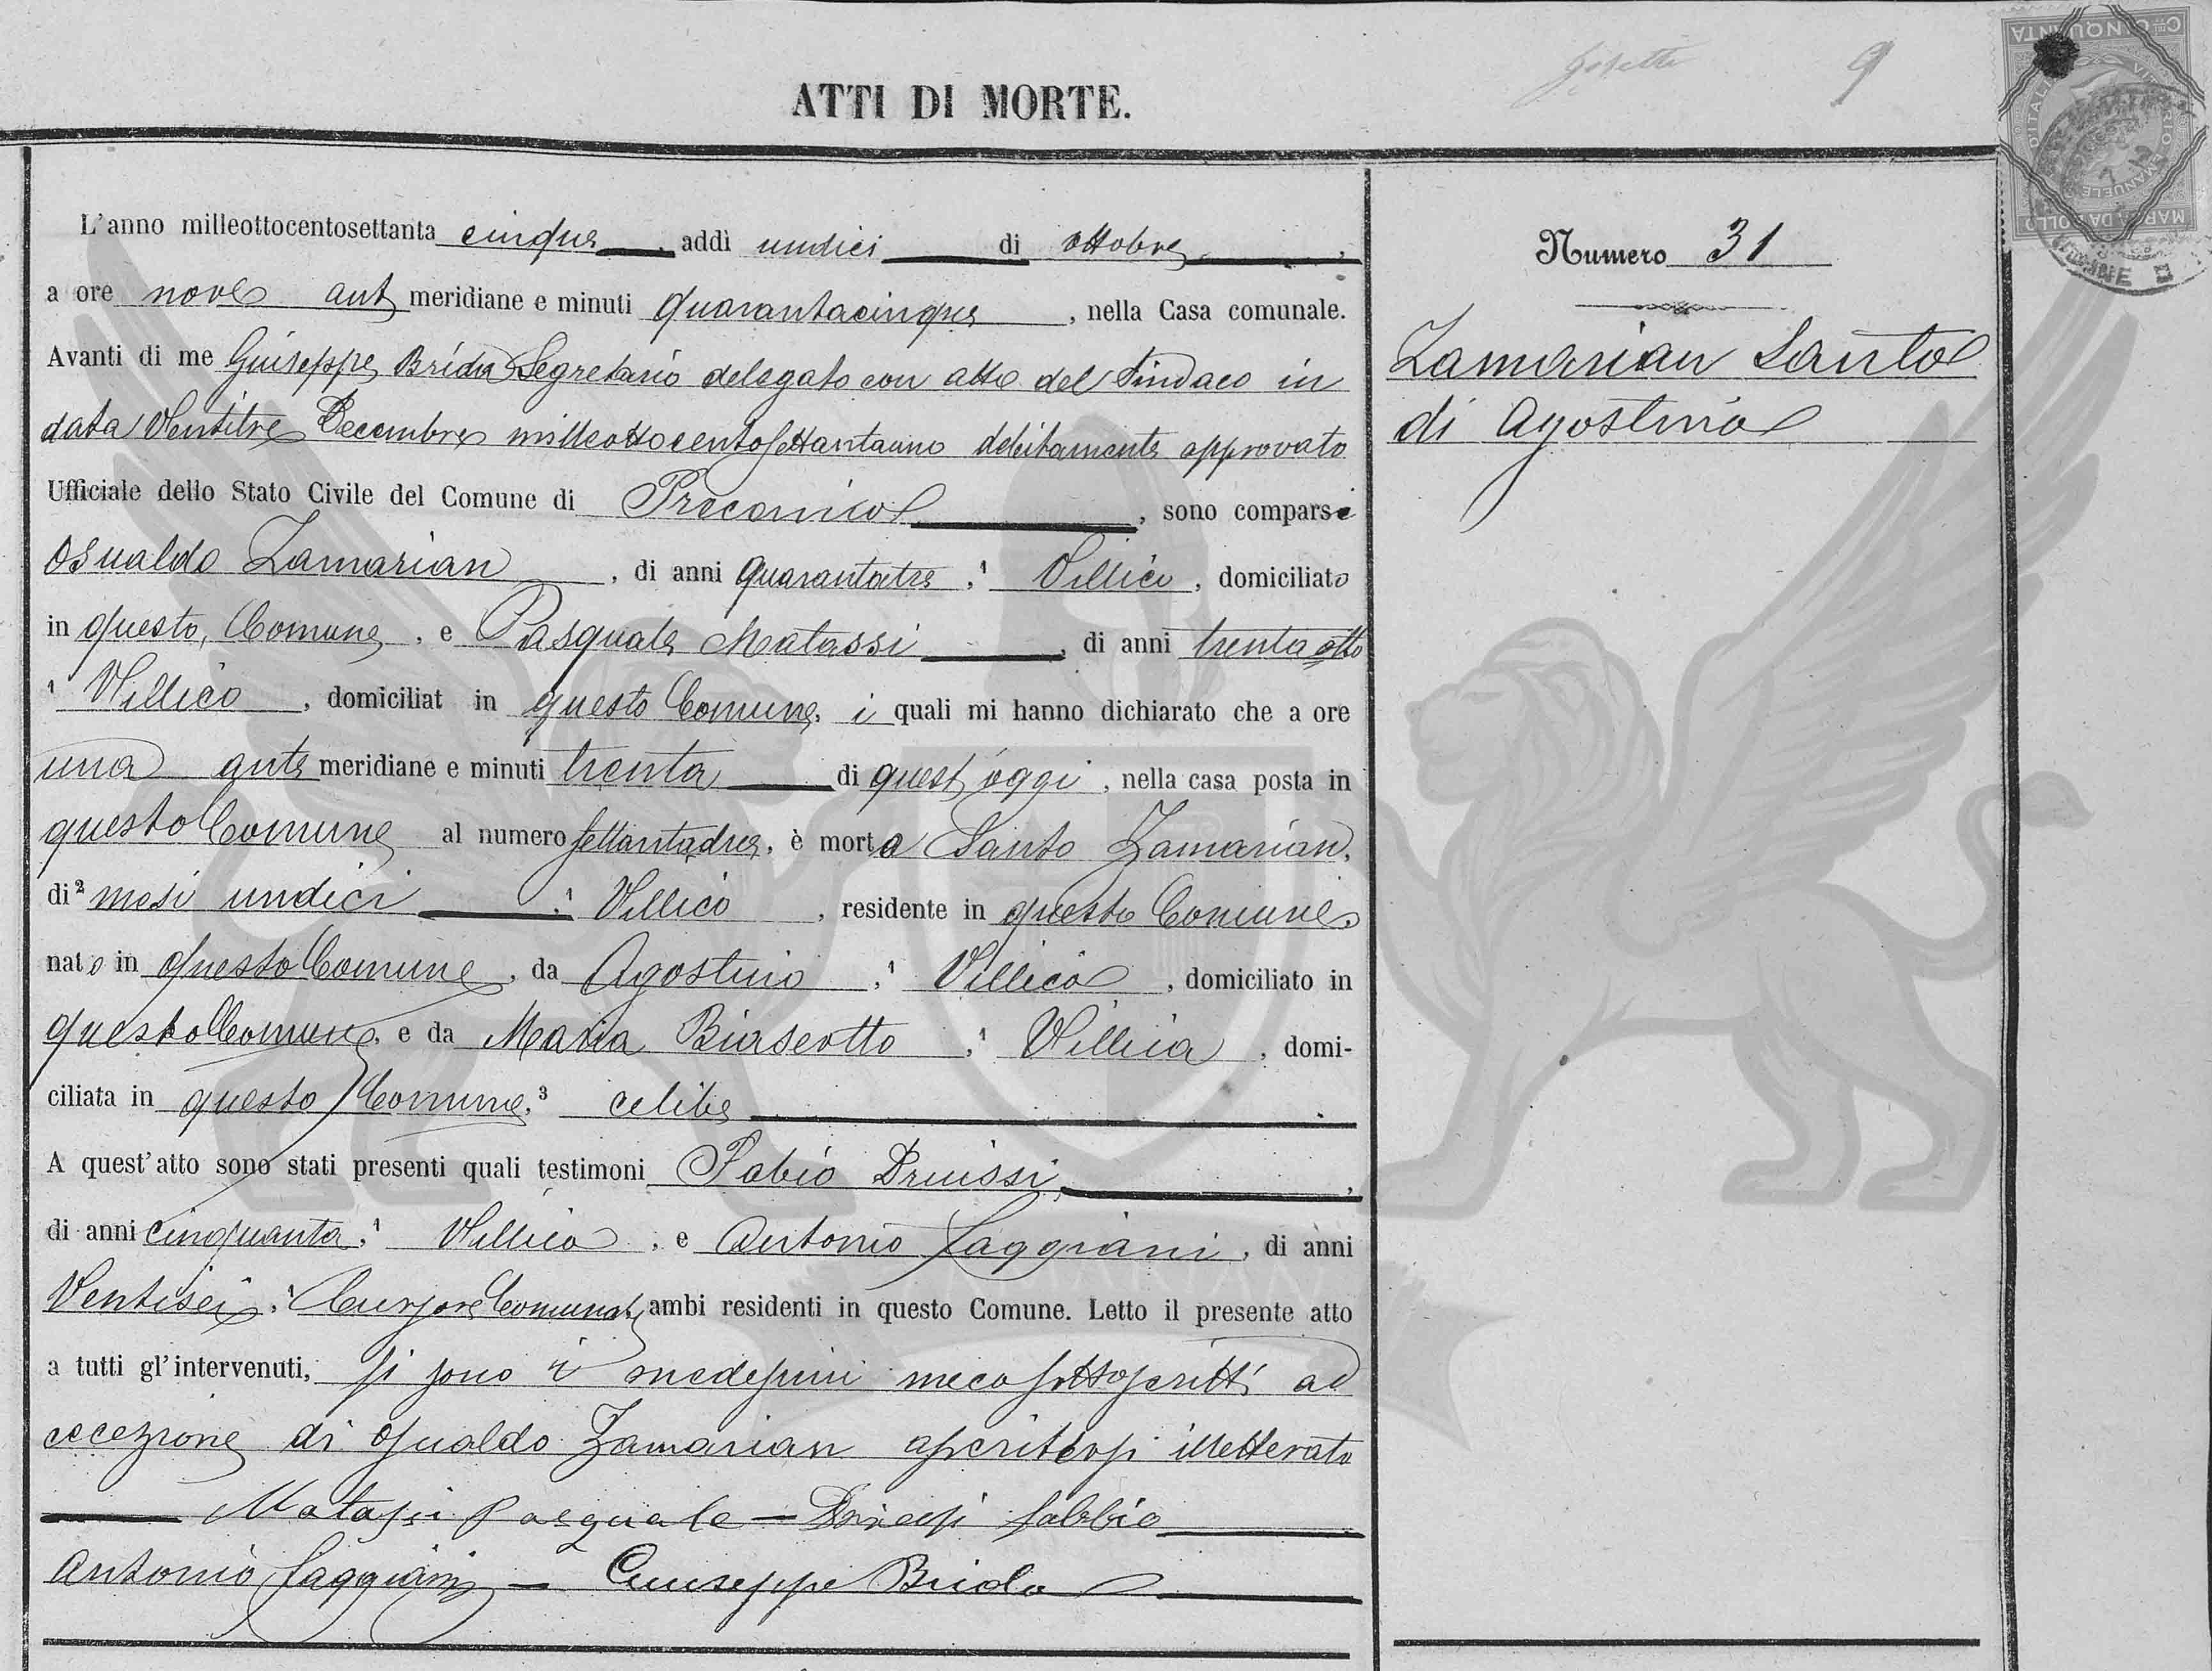 9
ATTI DI MORTE.
Numero 31
Zamarian Santo
di Agostino
L'anno milleottocentosettanta cinque, addì undici di ottobre,
a ore nove ant meridiane e minuti quarantacinque, nella Casa comunale.
Avanti di me Giuseppe Brida Segretario delegato con atto del Sindaco in
data Ventitre Decembre milleottocentosettantauno debitamente approvato
Ufficiale dello Stato Civile del Comune di Precenico, sono comparsi
Osualdo Zamarian, di anni quarantatre, ¹ Villici, domiciliato
in questo Comune, e Pasquale Matassi, di anni trentaotto
¹ Villico, domiciliat in questo Comune, i quali mi hanno dichiarato che a ore
una ante meridiane e minuti trenta di quest'oggi, nella casa posta in
questo Comune al numero settantadue, è morto Santo Zamarian,
di² mesi undici, ¹ Villico, residente in questo Comune,
nato in questo Comune, da Agostino, ¹ Villico, domiciliato in
questo Comune, e da Maria Biaseotto, ¹ Villica, domi-
ciliata in questo Comune, ³ celibe.
A quest'atto sono stati presenti quali testimoni Fabio Druissi,
di anni cinquanta, ¹ Villico, e Antonio Faggiani, di anni
Ventisei, ¹ Cursore Comunale, ambi residenti in questo Comune. Letto il presente atto
a tutti gl'intervenuti, si sono i medesimi meco sottoscritti ad
eccezione di Osualdo Zamarian asceritosi illetterato
Matassi Pasquale - Driussi fabbio
Antonio Faggiani - Giuseppe Brida
MARCA DA BOLLO
VITTORIO EMANUELE
D'ITALIA
CINQUANTA